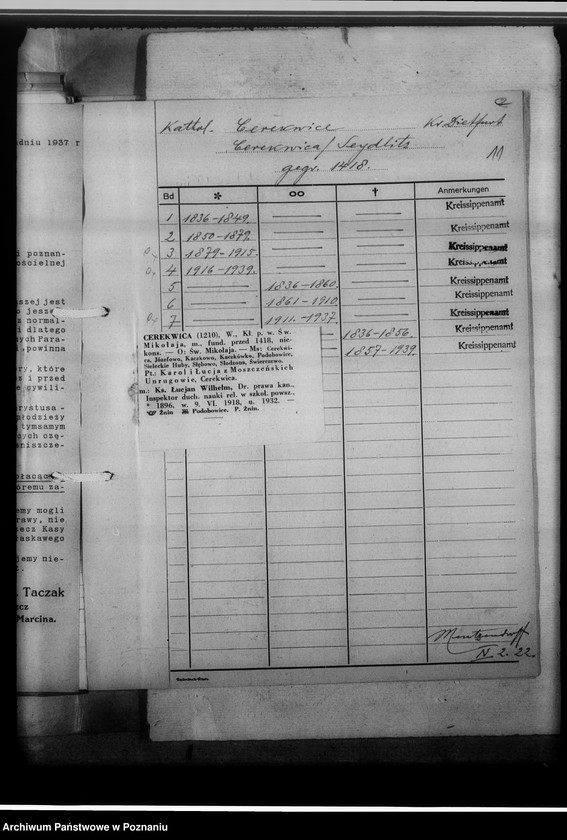 dniu 1937 r
i poznań-
ościelnej
aszej jest
o jesz
z normal-
i dlatego
nych Para-
, powinna
ry, które
z i przed
e cywili-
rystusa -
łodzieży
tymsamym
cych czę-
niszcze-
płacąc
óremu za-
emy mogli
rawy, nie
zecz Kasy
łaskawego
jemy nie-
. Taczak
zcz
Marcina.
2
Kathol. Cerekwice Kr. Dietfurt
Cerekwica/ Seydlitz
gegr. 1418. 11
Bd * ∞ † Anmerkungen
1 1836-1849. Kreissippenamt
2 1850-1879. Kreissippenamt
3 1879-1915. Kreissippenamt
4 1916-1939.
5 1836-1860. Kreissippenamt
6 1861-1910. Kreissippenamt
7 1911.-1937. Kreissippenamt
1836-1856. Kreissippenamt
1857-1939. Kreissippenamt
CEREKWICA (1210), W., Kł. p. w. Św.
Mikołaja, m., fund. przed 1418, nie-
kons. — O: Św. Mikołaja. — Ms: Cerekwi-
ca, Józefowo, Kaczkowo, Kaczkówko, Podobowice,
Sieleckie Huby, Słębowo, Słodzona, Świerczewo.
Pt.: Karol i Łucja z Moszczeńskich
Unrugowie, Cerekwica.
m.: Ks. Łucjan Wilhelm, Dr. prawa kan.,
Inspektor duch. nauki rel. w szkoł. powsz.,
* 1896, w. 9. VI. 1918, u. 1932. —
Żnin Podobowice. P. Żnin.
Mentzendorff
IV. 2. 22.
Archiwum Państwowe w Poznaniu